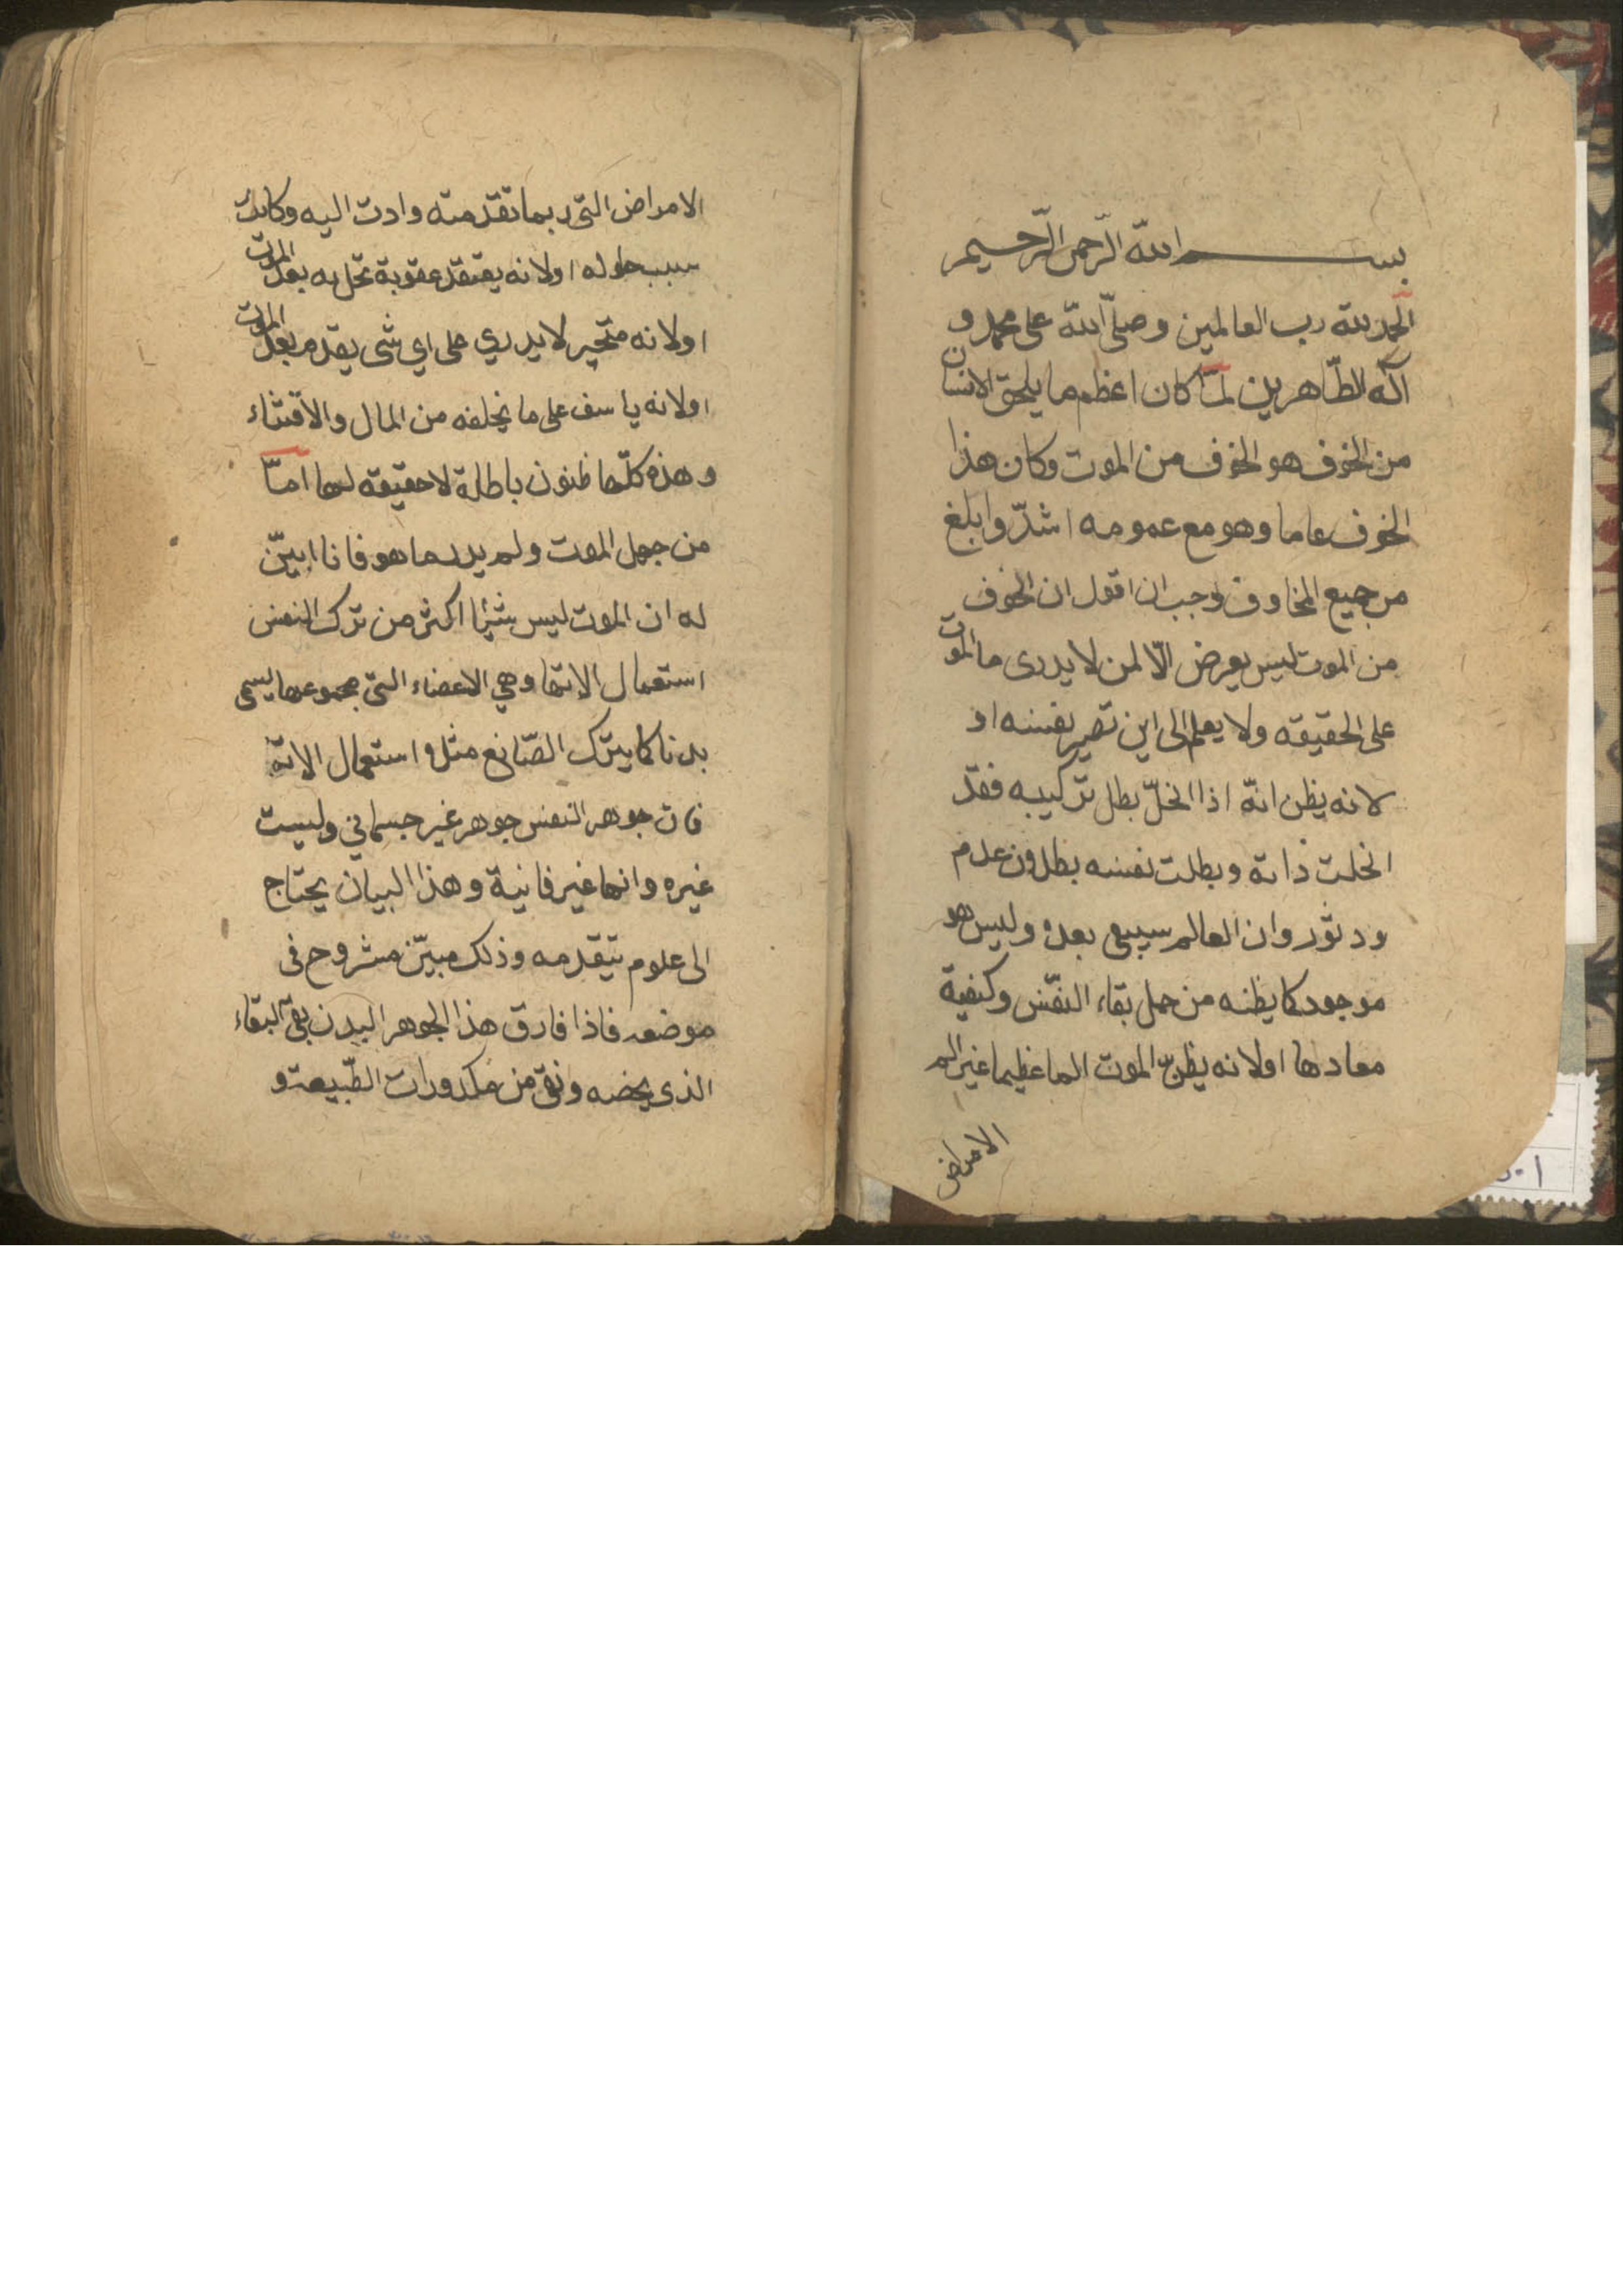 بسم الله الرحمن الرحيم
الحمد لله رب العالمين وصلّى الله على محمد و
آله الطّاهرين لمّا كان اعظم ما يلحق الانسان
من الخوف هو الخوف من الموت وكان هذا
الخوف عاما وهو مع عمومه اشدّ وابلغ
من جميع المخاوف وجب ان اقول ان الخوف
من الموت ليس يعرض الّا لمن لا يدرى ما الموت
على الحقيقه ولا يعلم الى اين تصير نفسه او
لانه يظن انه اذا انحلّ بطل تركيبه فقد
انحلت ذاته وبطلت نفسه بطلان عدم
ودثور وان العالم سيبقى بعده وليس هو
موجود كما يظنه من جهل بقاء النفّس وكيفية
معادها او لانه يظن الموت الما عظيما غير الم
الامراض
الامراض التى ربما تقدمته وادت اليه وكانت
سبب حلوله او لانه يعتقد عقوبة تحل به بعد الموت
او لانه متحير لا يدري على اي شى يقدم بعد الموت
او لانه ياسف على ما يخلفه من المال والاقتناء
وهذه كلّها ظنون باطلة لا حقيقه لها امّا
من جهل الموت ولم يدر ما هو فانا ابيّن
له ان الموت ليس شيئا اكثر من ترك النفس
استعمال الاتها وهي الاعضاء التى مجموعها يسمى
بدنا كما يترك الصّانع مثلا استعمال الاته
فان جوهر النفس جوهر غير جسماني وليست
غيره وانها غير فانية وهذا البيان يحتاج
الى علوم تتقدمه وذلك مبيّن مشروح فى
موضعه فاذا فارق هذا الجوهر البدن بقى البقاء
الذى يخصه ونقى من كدورات الطّبيعة و